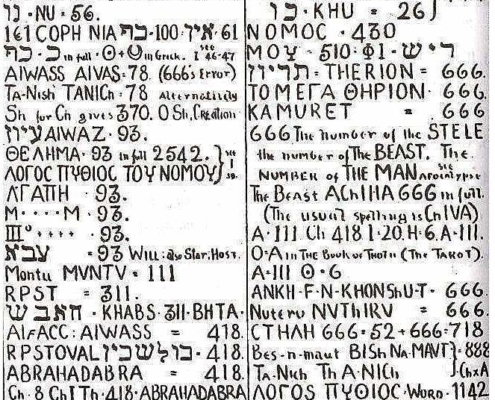 נו · NU = 56.
161 COPH NIA כף · 100 · איך · 61
כף · כ in full · ʘ + U in Greek. see I 46-47
AIWASS AIVAS · 78 (666's Error)
TA-Nish TANICh · 78 Alternatively
Sh for Ch gives 370. O Sh, Creation
עיוז AIWAZ · 93.
ΘΕΛΗΜΑ · 93 in full 2542.
ΛΟΓΟΣ ΠΥΘΙΟΣ ΤΟΥ ΝΟΜΟΥ
ΑΓΑΠΗ · 93.
M · · · · M · 93.
III° · · · · 93.
עבא = 93 Will: also Star, Host.
Montu MVNTV = 111
RPST = 311.
חאבש · KHABS · 311 · BHTA ·
AIFACC: AIWASS = 418.
RPSTOVAL · 418.
ABRAHADABRA · 418.
Ch · 8 Ch I Th · 418 · ABRAHADABRA
כו · KHU = 26
ΝΟΜΟΣ · 430
MOY = 510 · ΦΙ · ריש
תריון = THERION = 666.
ΤΟ ΜΕΓΑ ΘΗΡΙΟΝ · 666.
KAMURET = 666.
666 The number of the STELE
the number of The BEAST. The
NUMBER of THE MAN see Apocalypse
The Beast AChIHA 666 in full.
(The usual spelling is ChIVA)
A · III Ch 418 I · 20. H · 6. A · III.
O · A in the Book of Thoth (The TAROT).
A · III ʘ · 6
ANKH · F · N · KHONShU · T · 666.
Nuteru NVThIRV = 666.
CTHAH 666 · 52 + 666 = 718
Bes-n-maut BISh Na-MAVT } · 888
Ta-Nich Th A·NICh } Ch x A
ΛΟΓΟΣ ΠΥΘΙΟΣ · WORD · 1142